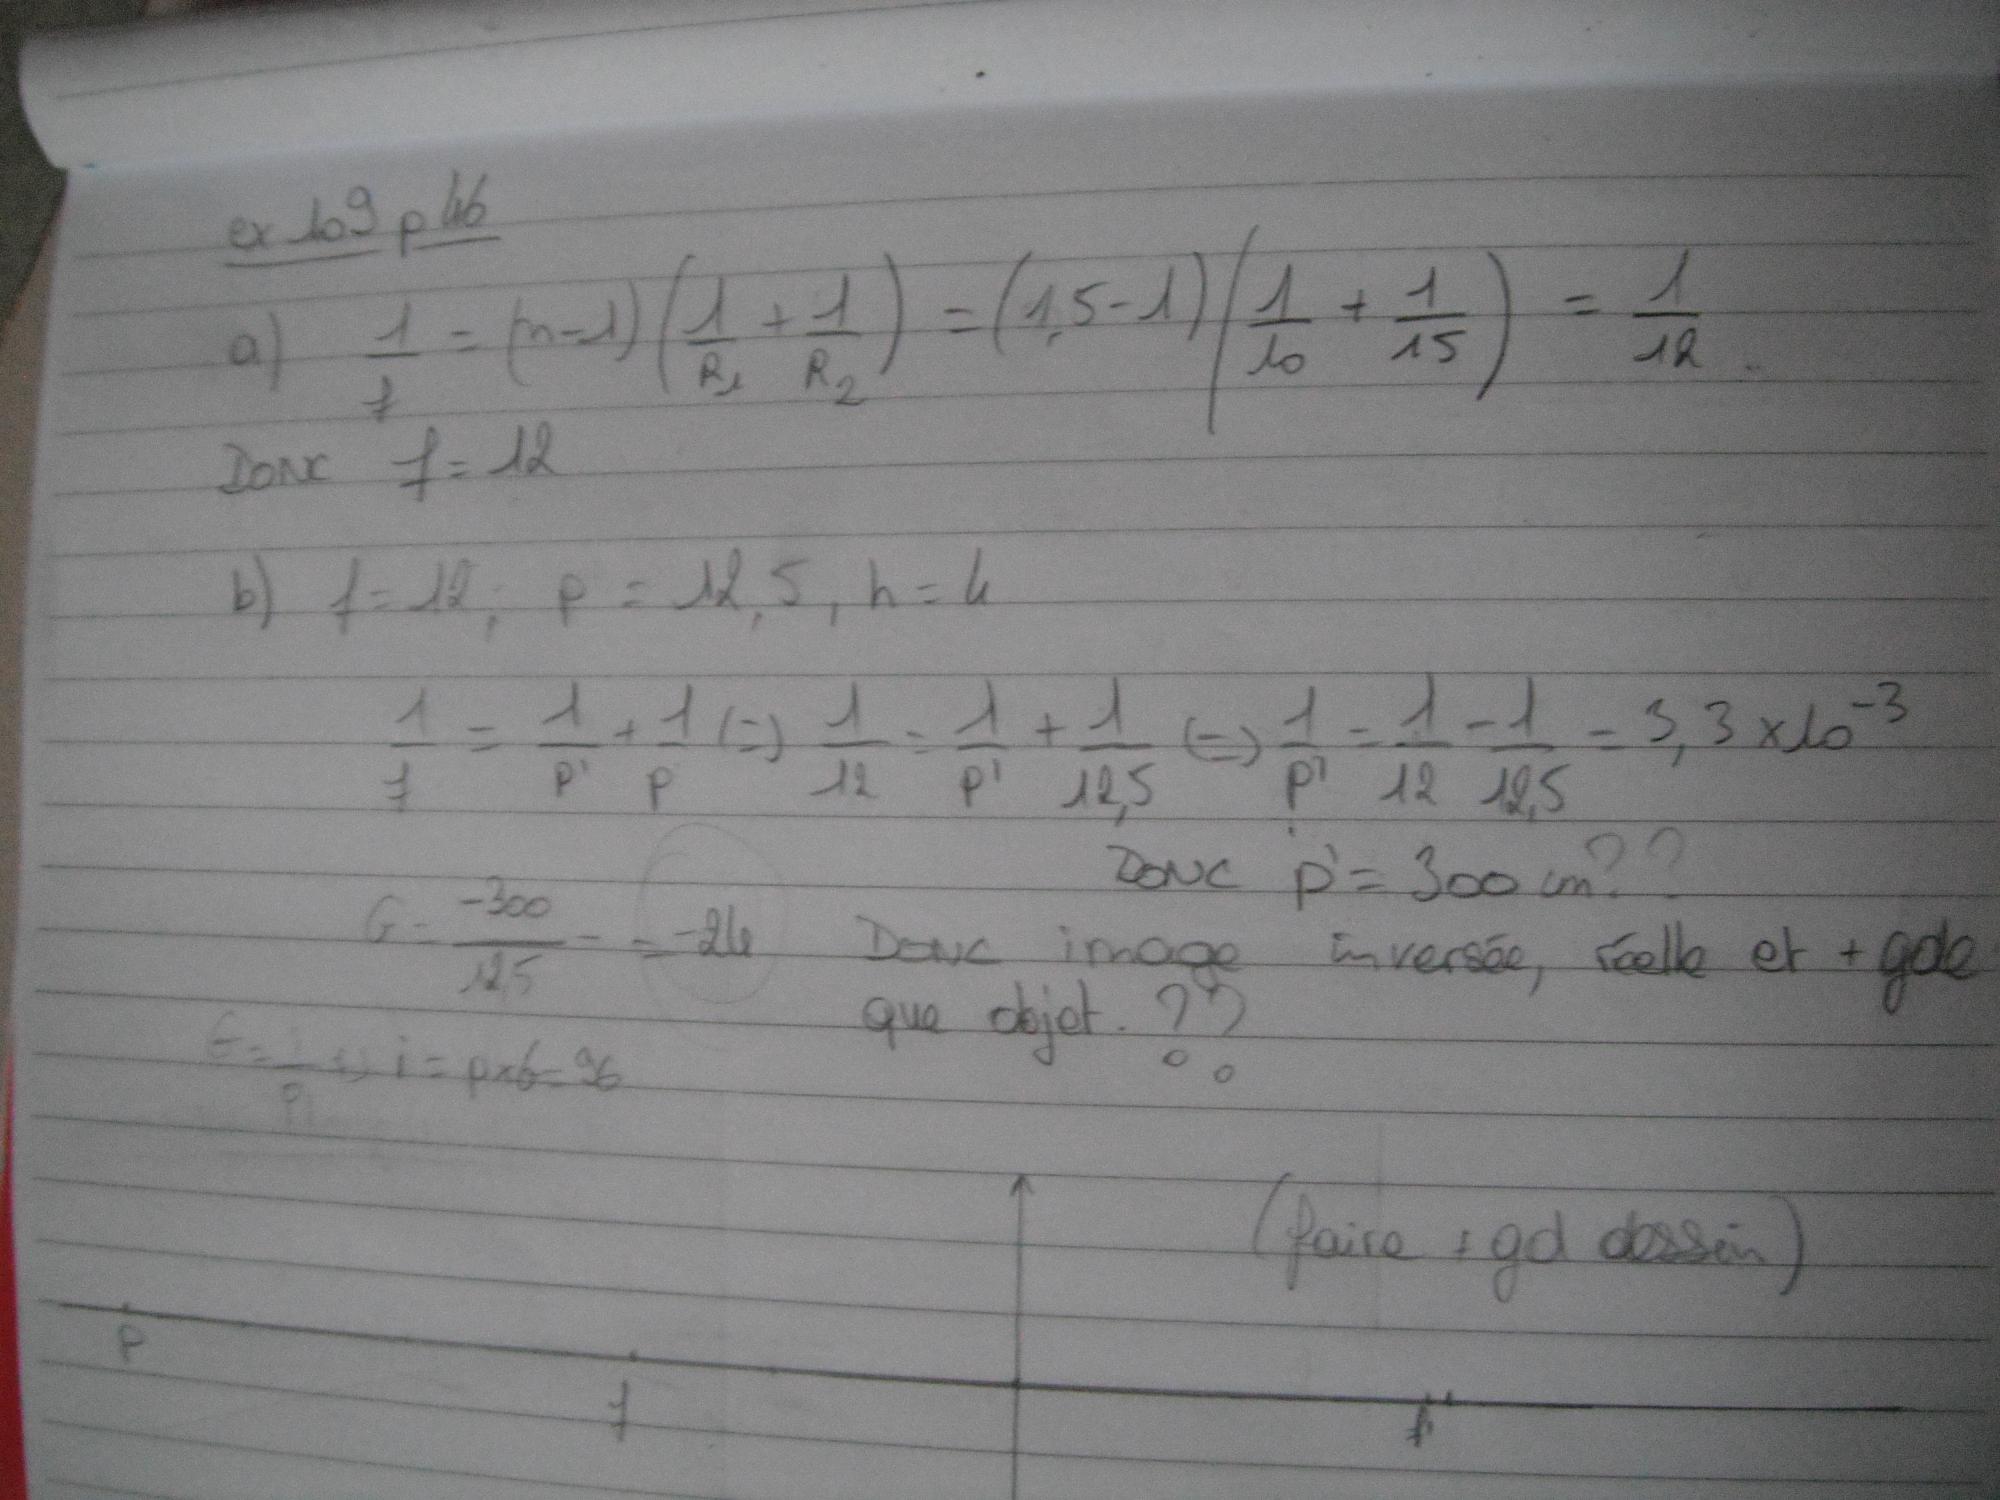 ex 109 p 46
a) 1/f = (n-1) (1/R1 + 1/R2) = (1,5-1) (1/10 + 1/15) = 1/12
Donc f = 12
b) f = 12; p = 12,5, h = 4
1/f = 1/p' + 1/p (=) 1/12 = 1/p' + 1/12,5 (=) 1/p' = 1/12 - 1/12,5 = 3,3 x 10^-3
Donc p' = 300 cm??
G = -300/12,5 = -24 Donc image inversée, réelle et + gde
que objet. ??
i = p x 6 = 96
(faire + gd dessin)
p
f